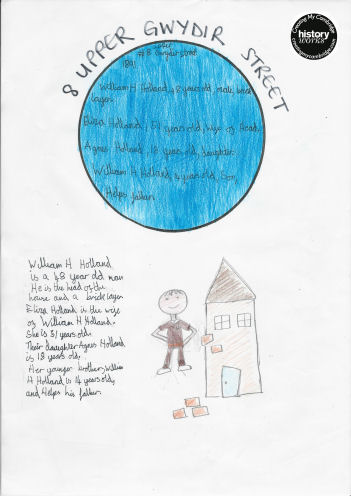 Creating My Cambridge
history
WORKS
8 UPPER GWYDIR STREET
Gwydir street
William H Holland, 48 years old, male, brick
layer.
Eliza Holland, 51 years old, wife of Head.
Agnes Holland, 18 years old, daughter.
William H Holland, 14 years old, Son,
Helps father.
William H Holland
is a 48 year old man
He is the head of the
house and a brick layer
Eliza Holland is the wife
of William H Holland.
She is 51 years old.
Their daughter Agnes Holland
is 18 years old.
Her younger brother, William
H Holland is 14 years old,
and Helps his father.